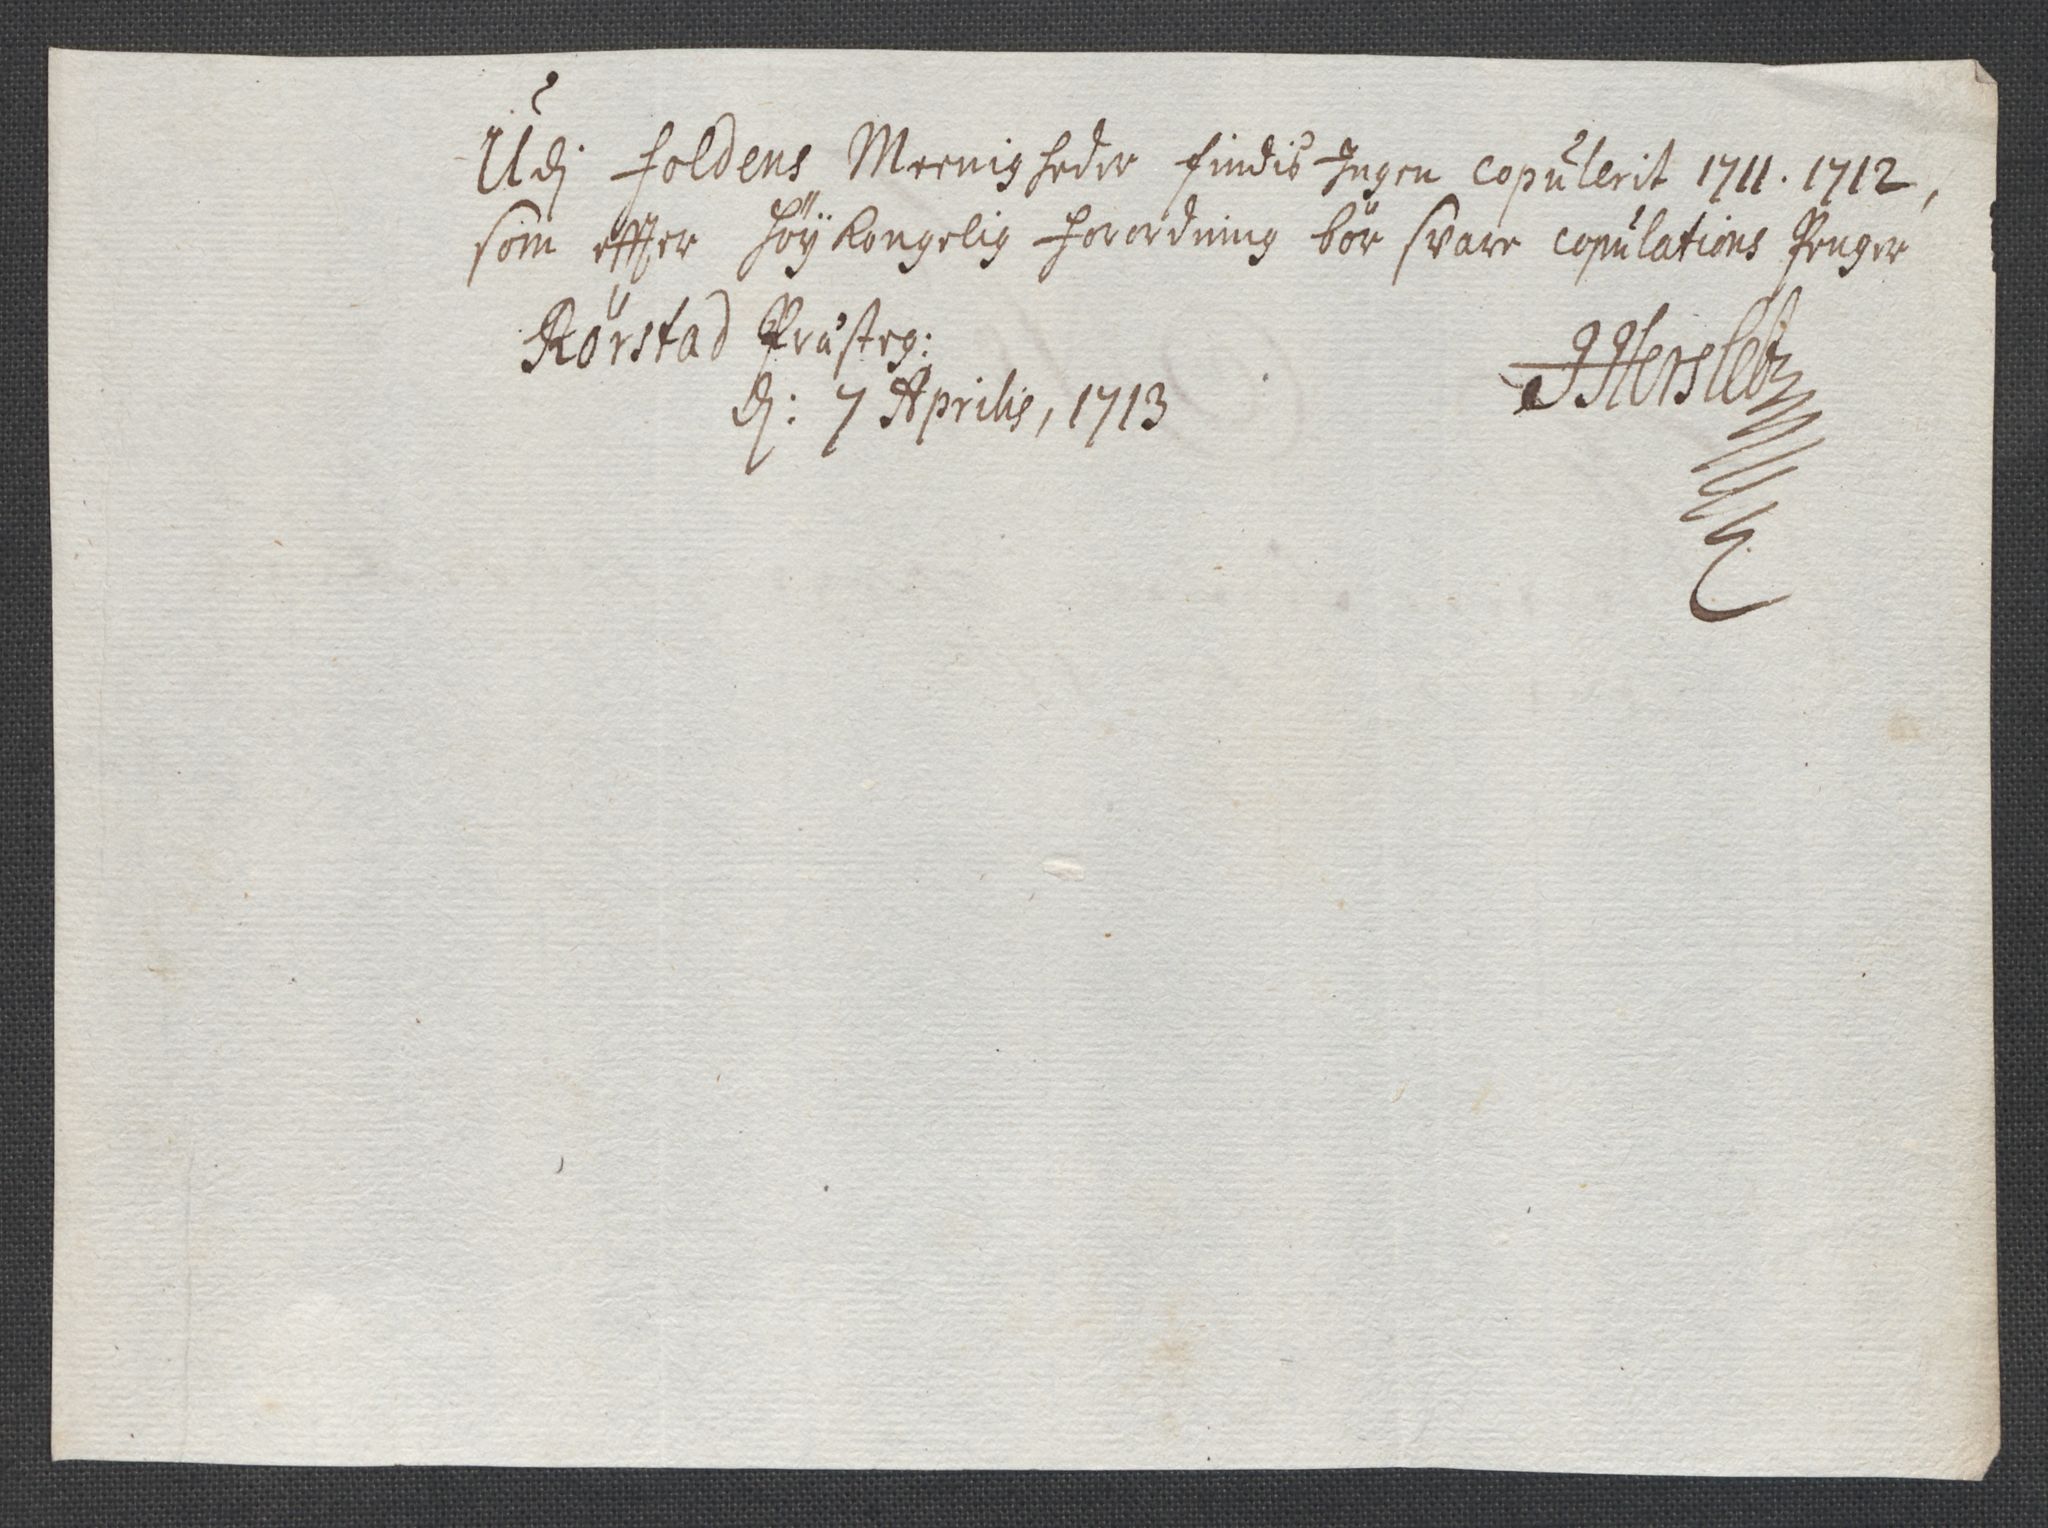 Udj foldens Meenigheder findis Ingen copulerit 1711. 1712,
som effter Höÿ Kongelig forordning bör svare copulations Penger
Rörstad Præsteg:
dj: 7 Aprilis, 1713
JHersleb